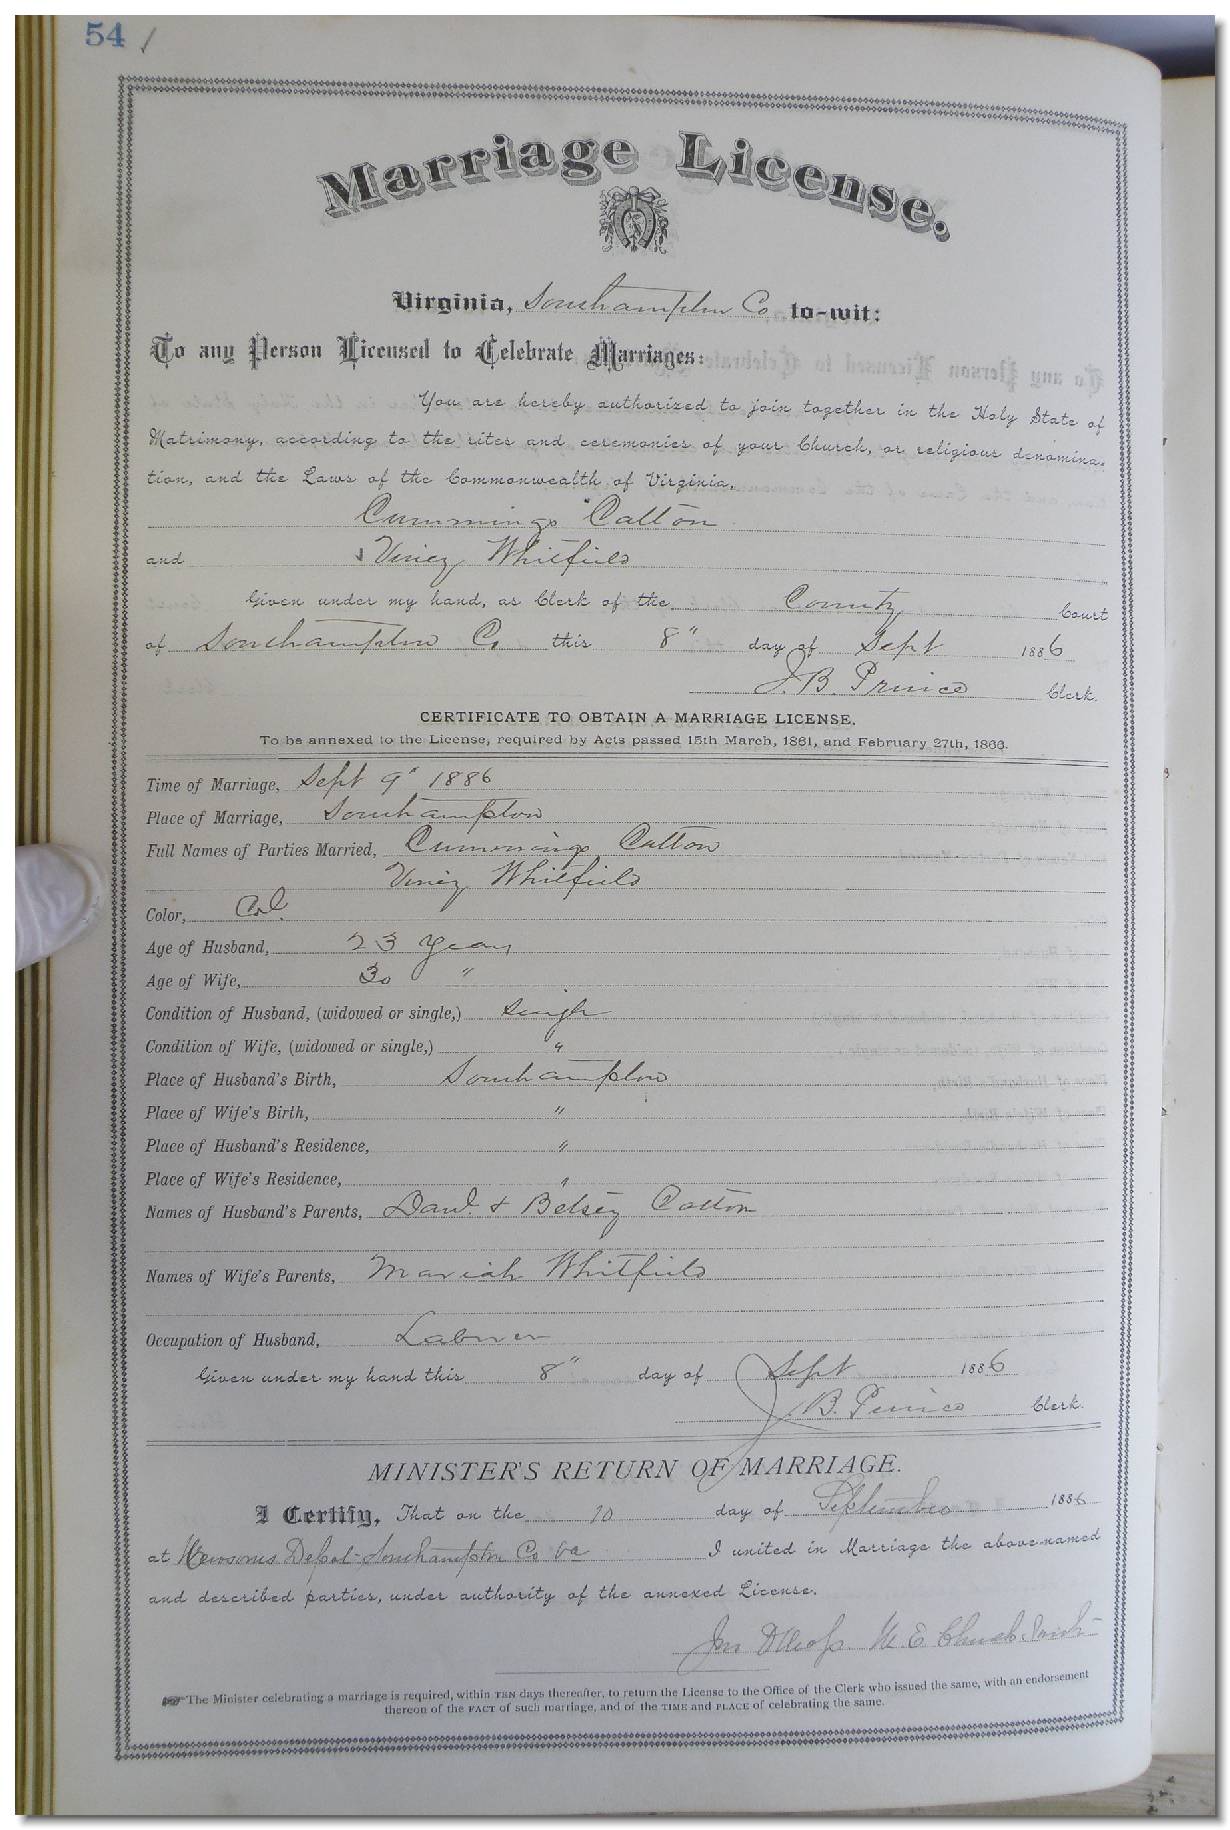 54 /
Marriage License.
Virginia, Southampton Co to-wit:
To any Person Licensed to Celebrate Marriages:
You are hereby authorized to join together in the Holy State of
Matrimony, according to the rites and ceremonies of your Church, or religious denomina-
tion, and the Laws of the Commonwealth of Virginia,
Cummings Catton
and Viney Whitfield
Given under my hand, as Clerk of the County Court
of Southampton Co this 8" day of Sept 1886
J. B. Prince Clerk.
CERTIFICATE TO OBTAIN A MARRIAGE LICENSE.
To be annexed to the License, required by Acts passed 15th March, 1861, and February 27th, 1866.
Time of Marriage, Sept 9" 1886
Place of Marriage, Southampton
Full Names of Parties Married, Cummings Catton
Viney Whitfield
Color, Col.
Age of Husband, 23 years
Age of Wife, 30 "
Condition of Husband, (widowed or single,) single
Condition of Wife, (widowed or single,) "
Place of Husband's Birth, Southampton
Place of Wife's Birth, "
Place of Husband's Residence, "
Place of Wife's Residence, "
Names of Husband's Parents, Davd. & Betsey Catton
Names of Wife's Parents, Mariah Whitfield
Occupation of Husband, Laborer
Given under my hand this 8" day of Sept 1886
J. B. Prince Clerk.
MINISTER'S RETURN OF MARRIAGE.
I Certify, That on the 10 day of September 1886
at Newsoms Depot - Southampton Co Va I united in Marriage the above-named
and described parties, under authority of the annexed License.
M. E. Church
The Minister celebrating a marriage is required, within TEN days thereafter, to return the License to the Office of the Clerk who issued the same, with an endorsement
thereon of the FACT of such marriage, and of the TIME and PLACE of celebrating the same.